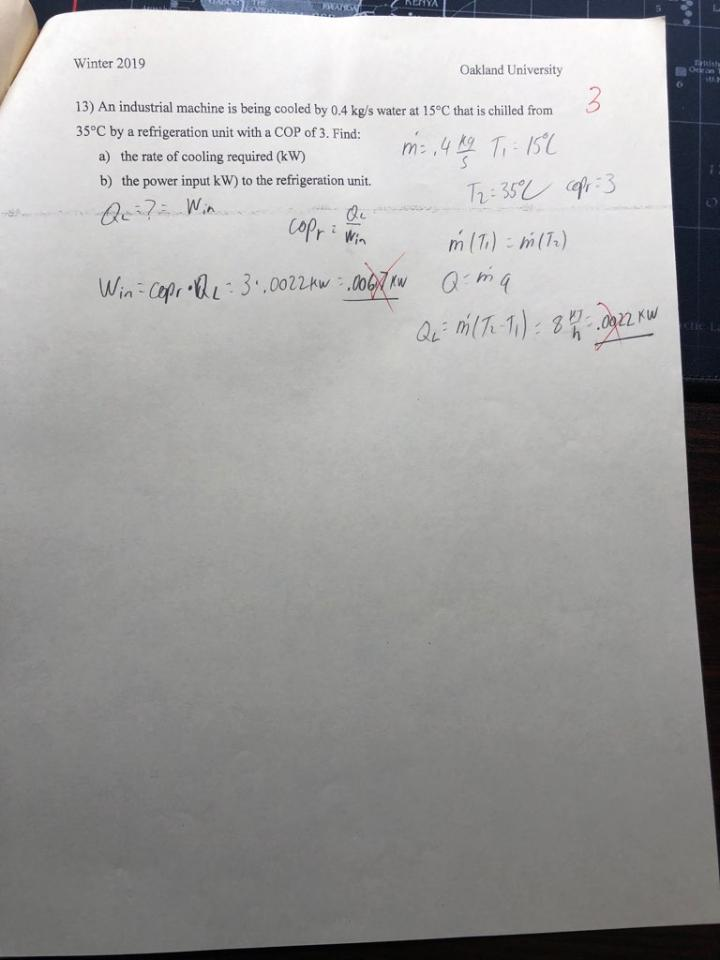 KENYA
RWANDA
Winter 2019
Oakland University
3
13) An industrial machine is being cooled by 0.4 kg/s water at 15°C that is chilled from
35°C by a refrigeration unit with a COP of 3. Find:
a) the rate of cooling required (kW)
b) the power input kW) to the refrigeration unit.
ṁ = .4 kg/s T₁ = 15°C
T₂ = 35°C copr = 3
QL = ? = Win
copr = QL/Win
ṁ(T₁) = ṁ(T₂)
Win = copr • QL = 3 • .0022kw = .0067 kw
Q = ṁq
QL = ṁ(T₂-T₁) = 8 kJ/h = .0022 kW